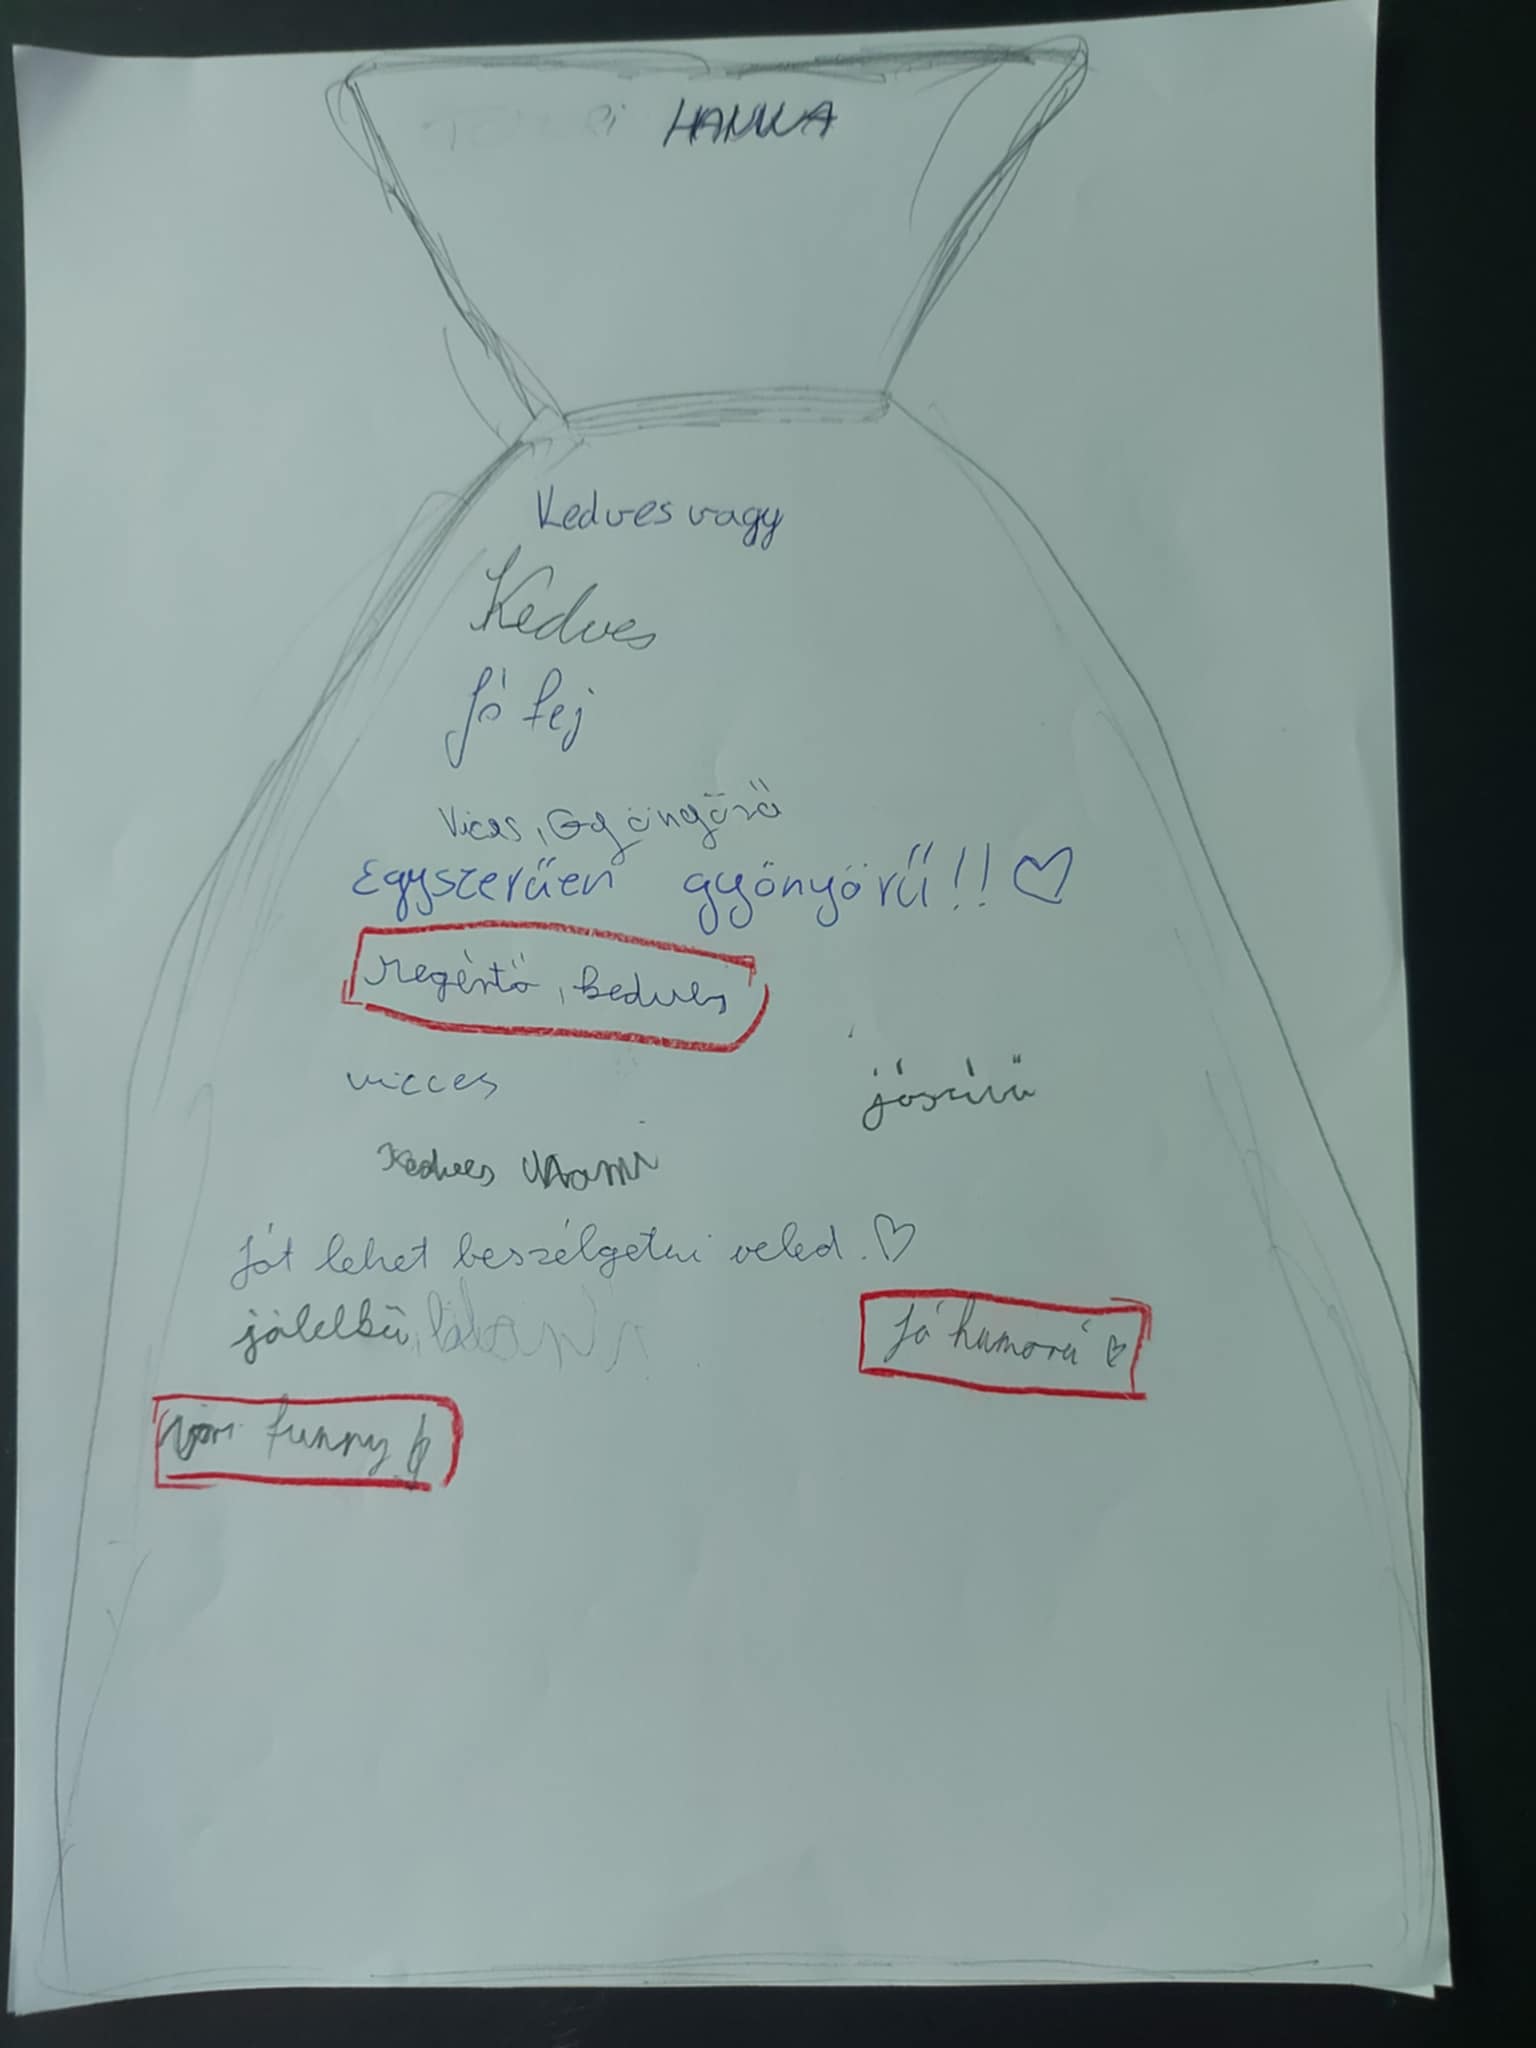 HANNA
Kedves vagy
Kedves
Jó fej
Vices, Gyöngörű
Egyszerűen gyönyörű!! ♡
Megértő, kedves
vicces
jószívű
Kedves
Jót lehet beszélgetni veled. ♡
jólelkű,
Jó humorú ♡
funny